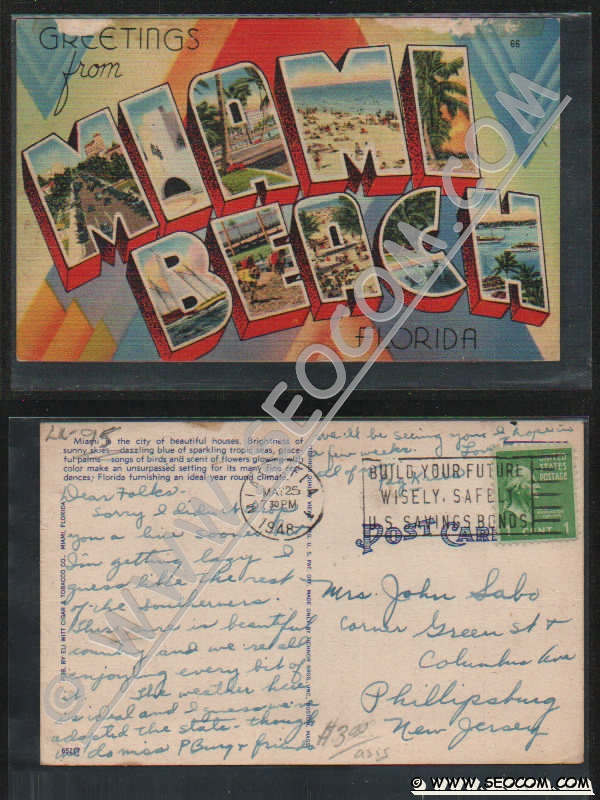 GREETINGS
from
66
MIAMI
BEACH
FLORIDA
LL-95
Miami is the city of beautiful houses. Brightness of
sunny skies—dazzling blue of sparkling tropic seas, grace-
ful palms—songs of birds and scent of flowers glowing with
color make an unsurpassed setting for its many fine resi-
dences; Florida furnishing an ideal year round climate.
Dear Folks:-
Sorry I didn't drop
you a line sooner but
I'm getting lazy I
guess like the rest
of the Southerners.
This sure is beautiful
country and we're all
enjoying every bit of
it. The weather here
is ideal and I guess we've
adopted the state - though
we do miss P'Burg & friends
we'll be seeing you I hope in
a few weeks. Love
MIAMI
MAR 25
7 30 PM
1948
BUILD YOUR FUTURE
WISELY, SAFELY
U.S. SAVINGS BONDS
UNITED
STATES
POSTAGE
CENT 1
POST CARD
Mrs. John Sabo
Corner Green St &
Columbus Ave
Phillipsburg
New Jersey
$3.00
PUB. BY ELI WITT CIGAR & TOBACCO CO., MIAMI, FLORIDA
© WWW.SEOCOM.COM
© WWW.SEOCOM.COM